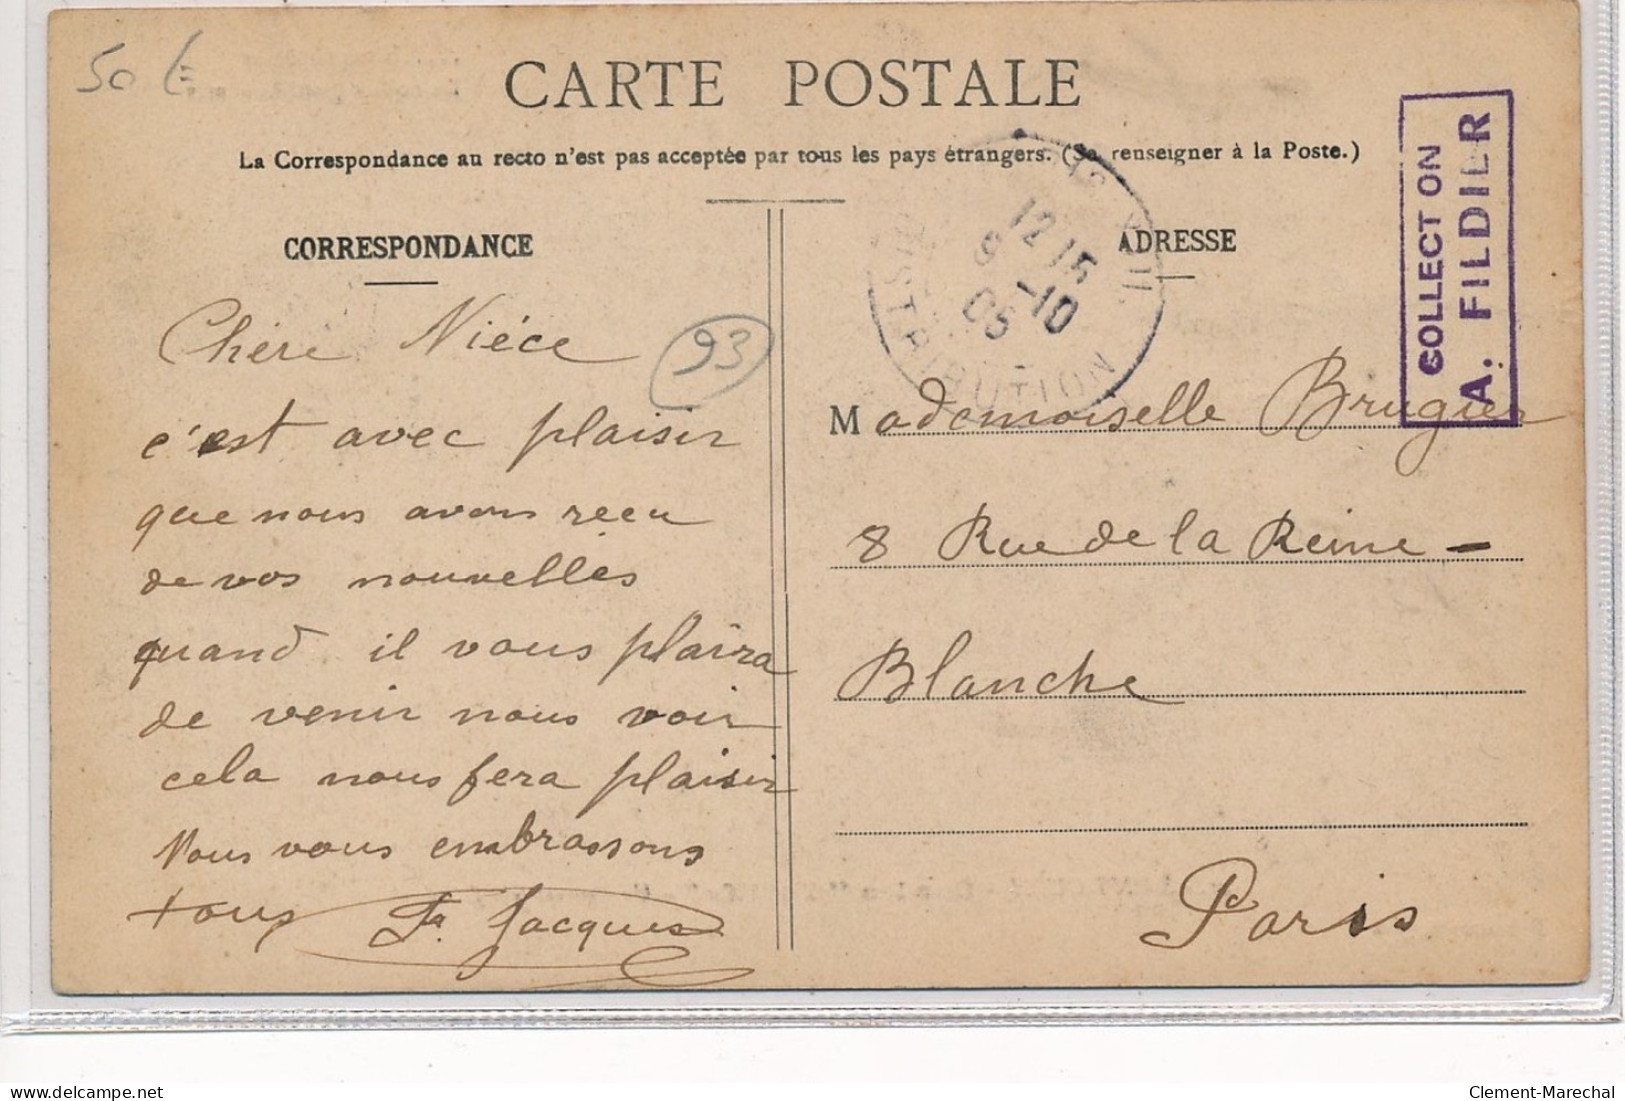 50 €
CARTE POSTALE
La Correspondance au recto n'est pas acceptée par tous les pays étrangers. (Se renseigner à la Poste.)
CORRESPONDANCE
Chère Niéce
93
c'est avec plaisir
que nous avons recu
de vos nouvelles
quand il vous plaira
de venir nous voir
cela nous fera plaisir
Nous vous embrassons
tous Fr. Jacques
ADRESSE
12 15
9 -10
05
DISTRIBUTION
COLLECT ON
A. FILDIER
Mademoiselle Brugier
8 Rue de la Reine -
Blanche
Paris
delcampe.net
Clement-Marechal